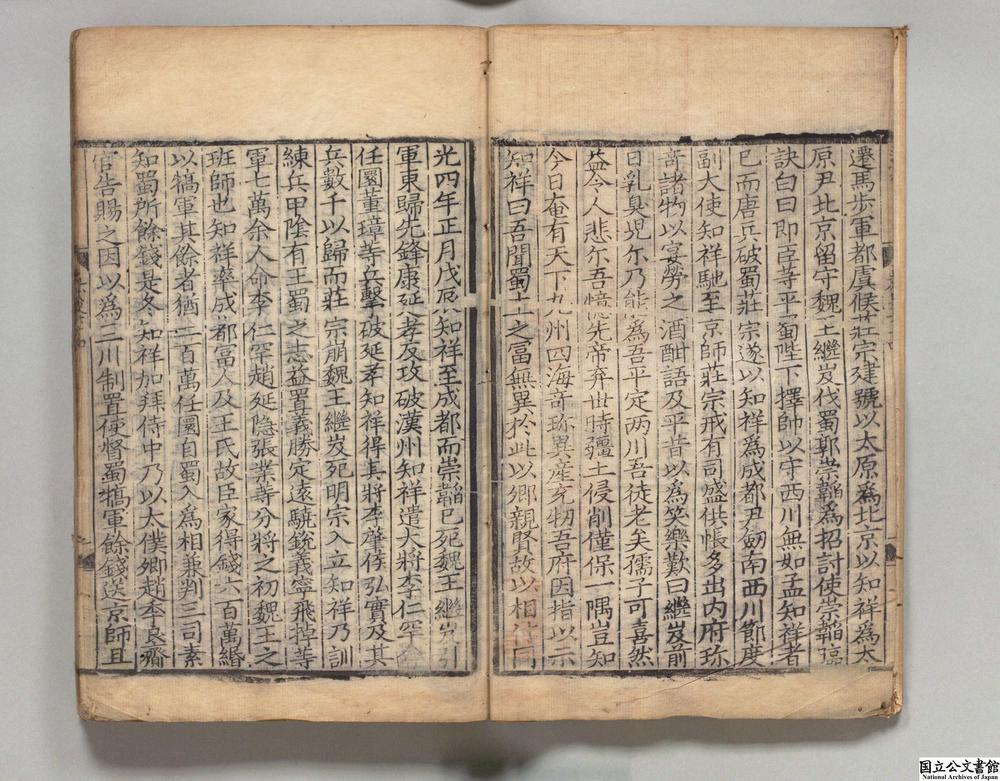 遷馬步軍都虞候莊宗建號以太原爲北京以知祥爲太
原尹北京留守魏王繼岌伐蜀郭崇韜爲招討使崇韜臨
訣白曰即臣等平蜀陛下擇帥以守西川無如孟知祥者
已而唐兵破蜀莊宗遂以知祥爲成都尹劒南西川節度
副大使知祥馳至京師莊宗戒有司盛供帳多出内府珎
竒諸物以宴勞之酒酣語及平昔以爲笑樂歎曰繼岌前
日乳臭児尔乃能爲吾平定两川吾徒老矣孺子可喜然
益令人悲尔吾憶先帝弃世時疆土侵削僅保一隅豈知
今日奄有天下九州四海竒珎異産充牣吾府因指以示
知祥曰吾聞蜀土之富無異於此以卿親賢故以相付同
光四年正月戊辰知祥至成都而崇韜已死魏王繼岌引
軍東歸先鋒康延孝反攻破漢州知祥遣大將李仁罕會
任圜董璋等兵擊破延孝知祥得其將李肇侯弘實及其
兵數千以歸而莊宗崩魏王繼岌死明宗入立知祥乃訓
練兵甲隂有王蜀之志益置義勝定遠驍銳義寧飛棹等
軍七萬余人命李仁罕趙延隐張業等分將之初魏王之
班師也知祥率成都富人及王氏故臣家得錢六百萬緡
以犒軍其餘者猶二百萬任圜自蜀入爲相兼判三司素
知蜀所餘錢是冬知祥加拜侍中乃以太僕卿趙季良齎
官告賜之因以爲三川制置使督蜀犒軍餘錢送京師且
国立公文書館
National Archives of Japan